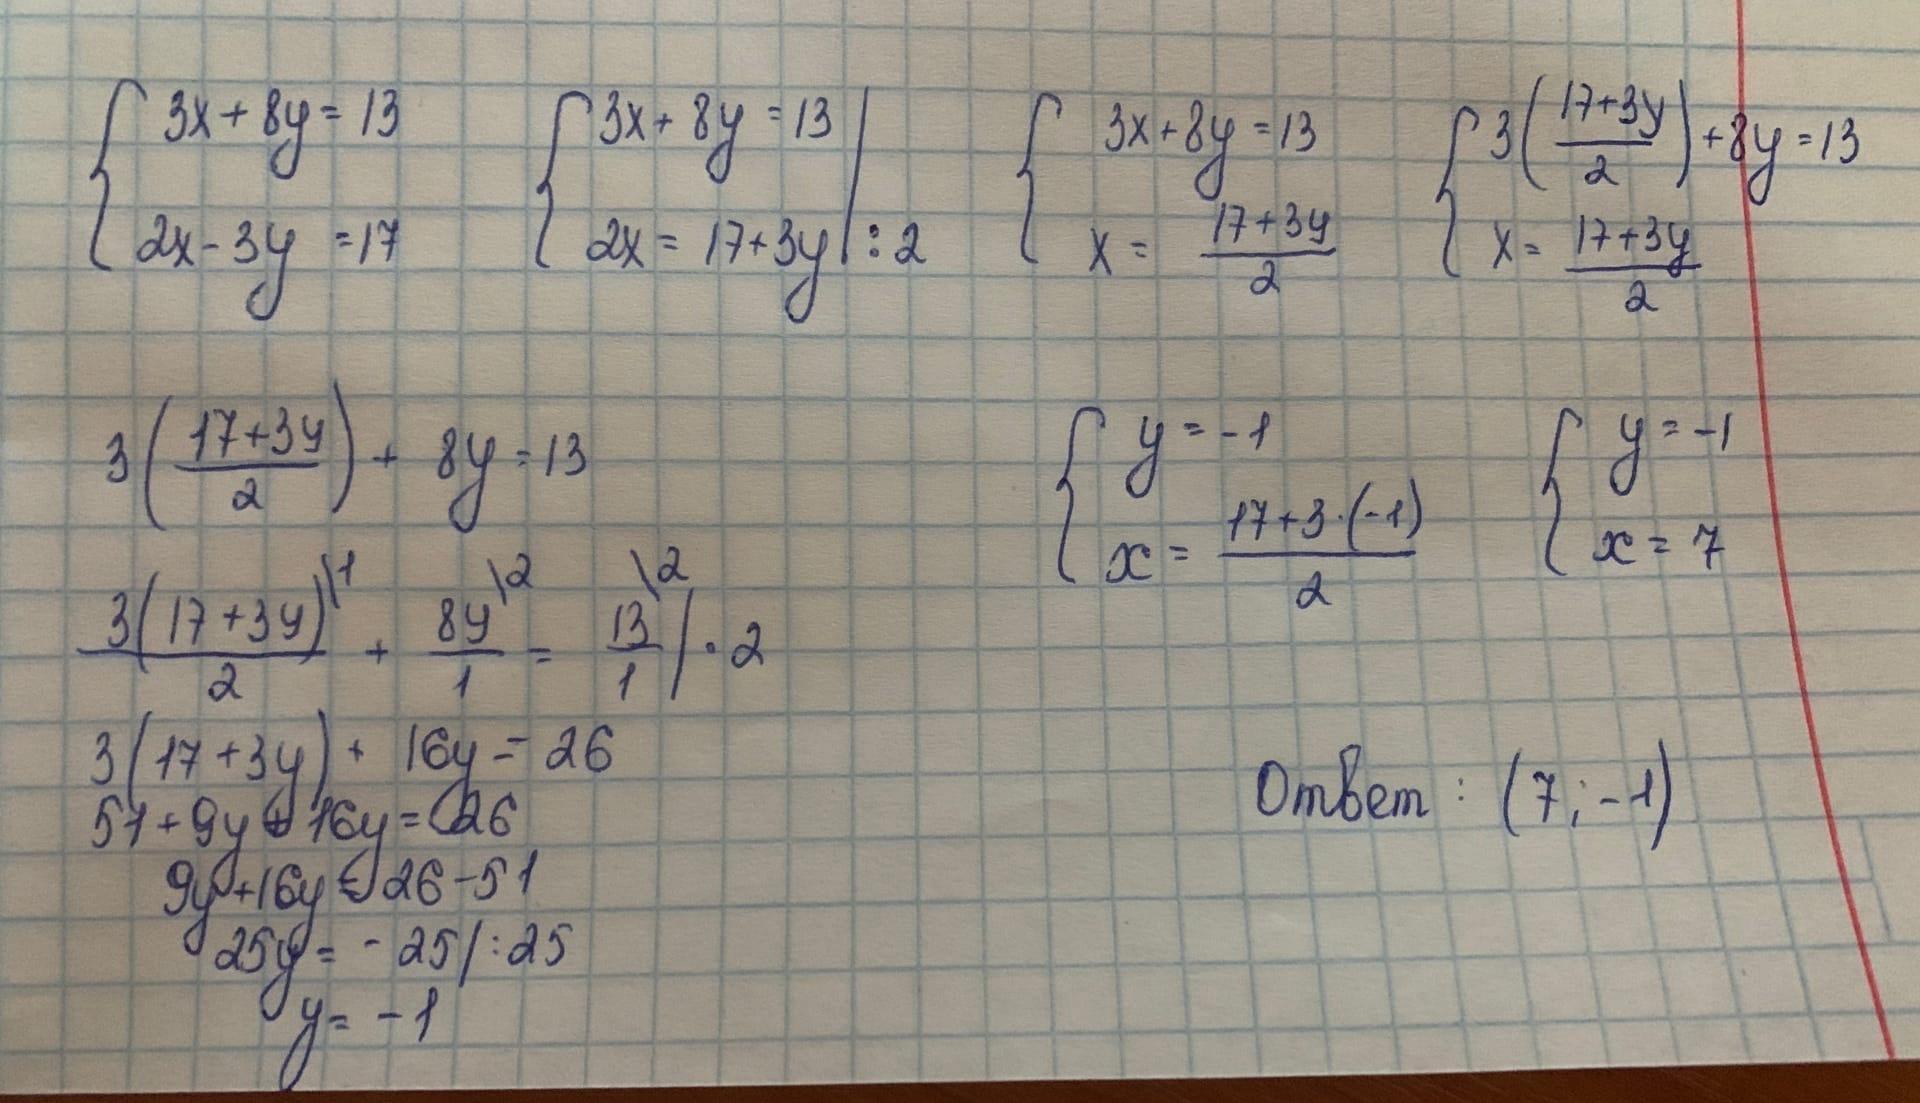 { 3x + 8y = 13   { 3x + 8y = 13 |   { 3x + 8y = 13   { 3((17+3y)/2) + 8y = 13
2x - 3y = 17   2x = 17+3y | : 2   x = (17+3y)/2   x = (17+3y)/2
3((17+3y)/2) + 8y = 13
3(17+3y)\1/2 + 8y\2/1 = 13\2/1 | · 2
3(17+3y) + 16y = 26
51 + 9y + 16y = 26
9y + 16y = 26 - 51
25y = - 25 | : 25
y = - 1
{ y = -1   { y = -1
x = (17+3·(-1))/2   x = 7
Ответ : (7; -1)